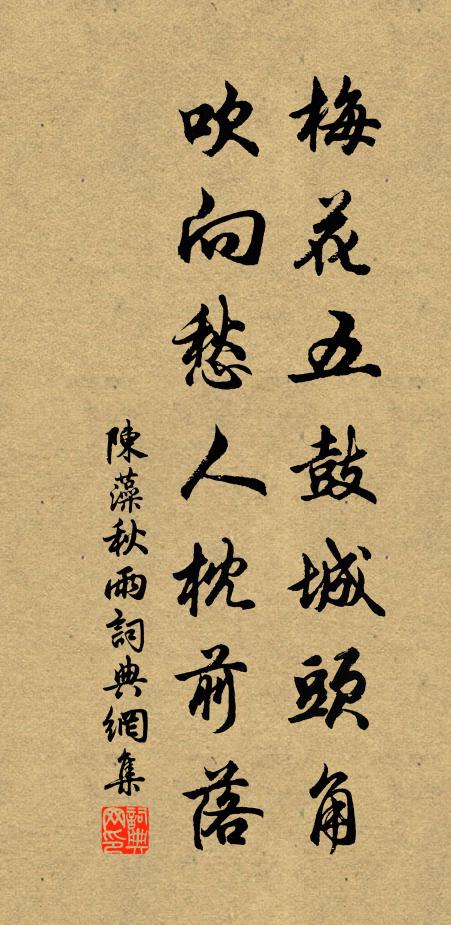 梅花五鼓城頭角
吹向愁人枕前落
陳藻秋雨詞典網集
詞典網印